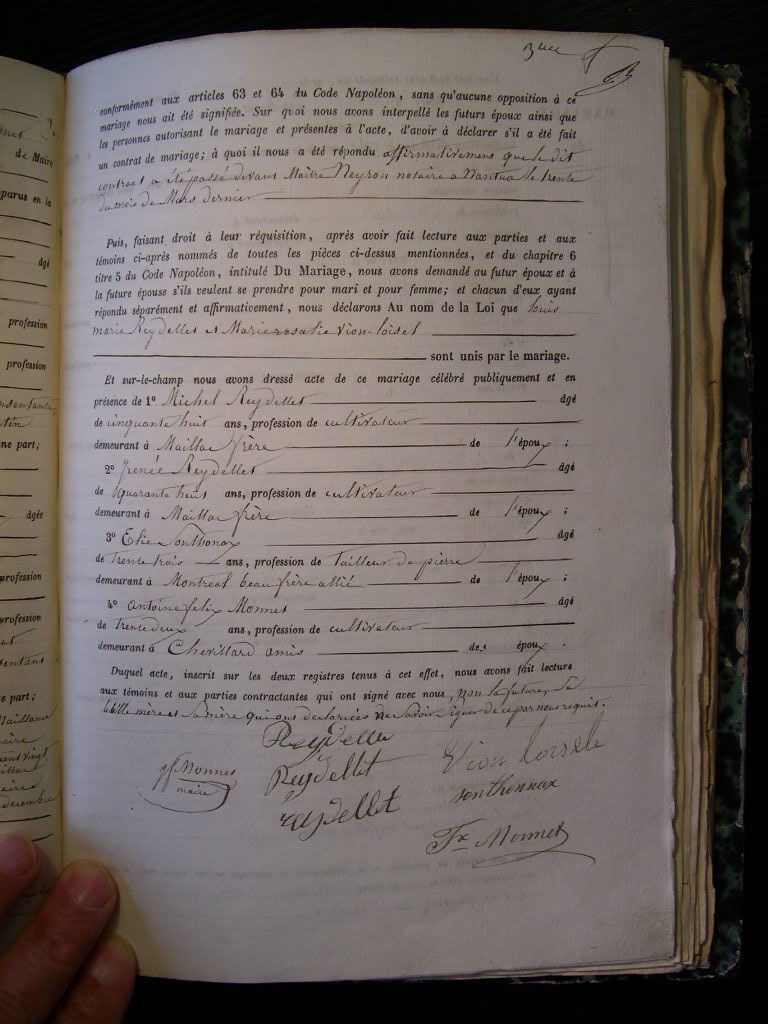 3me
conformément aux articles 63 et 64 du Code Napoléon, sans qu'aucune opposition à ce
mariage nous ait été signifiée. Sur quoi nous avons interpellé les futurs époux ainsi que
les personnes autorisant le mariage et présentes à l'acte, d'avoir à déclarer s'il a été fait
un contrat de mariage; à quoi il nous a été répondu affirmativement que le dit
contract a été passé devant Maitre Neyron notaire a Nantua le trente
du mois de Mars dernier
Puis, faisant droit à leur réquisition, après avoir fait lecture aux parties et aux
témoins ci-après nommés de toutes les pièces ci-dessus mentionnées, et du chapitre 6
titre 5 du Code Napoléon, intitulé Du Mariage, nous avons demandé au futur époux et à
la future épouse s'ils veulent se prendre pour mari et pour femme; et chacun d'eux ayant
répondu séparément et affirmativement, nous déclarons Au nom de la Loi que louis
marie Reydellet et Marie rosalie Vion-loisel
sont unis par le mariage.
Et sur-le-champ nous avons dressé acte de ce mariage célébré publiquement et en
présence de 1° Michel Reydellet âgé
de cinquante huit ans, profession de cultivateur
demeurant à Maillac frère de l'époux ;
2° frenée Reydellet âgé
de quarante huit ans, profession de cultivateur
demeurant à Maillac frère de l'époux ;
3° Elie Southonax âgé
de trente trois ans, profession de tailleur de pierre
demeurant à Montreal beau frère allié de l'époux ;
4° antoine felix Monnet âgé
de trente deux ans, profession de cultivateur
demeurant à Chevillard amis des époux .
Duquel acte, inscrit sur les deux registres tenus à cet effet, nous avons fait lecture
aux témoins et aux parties contractantes qui ont signé avec nous, non la future, sa
mère et la mère qui ont déclarées ne savoir signer de ce par nous requis.
Reydellet
Vion loisele
Monnet
maire
Reydellet
sonthonnax
Reydellet
Fx Monnet